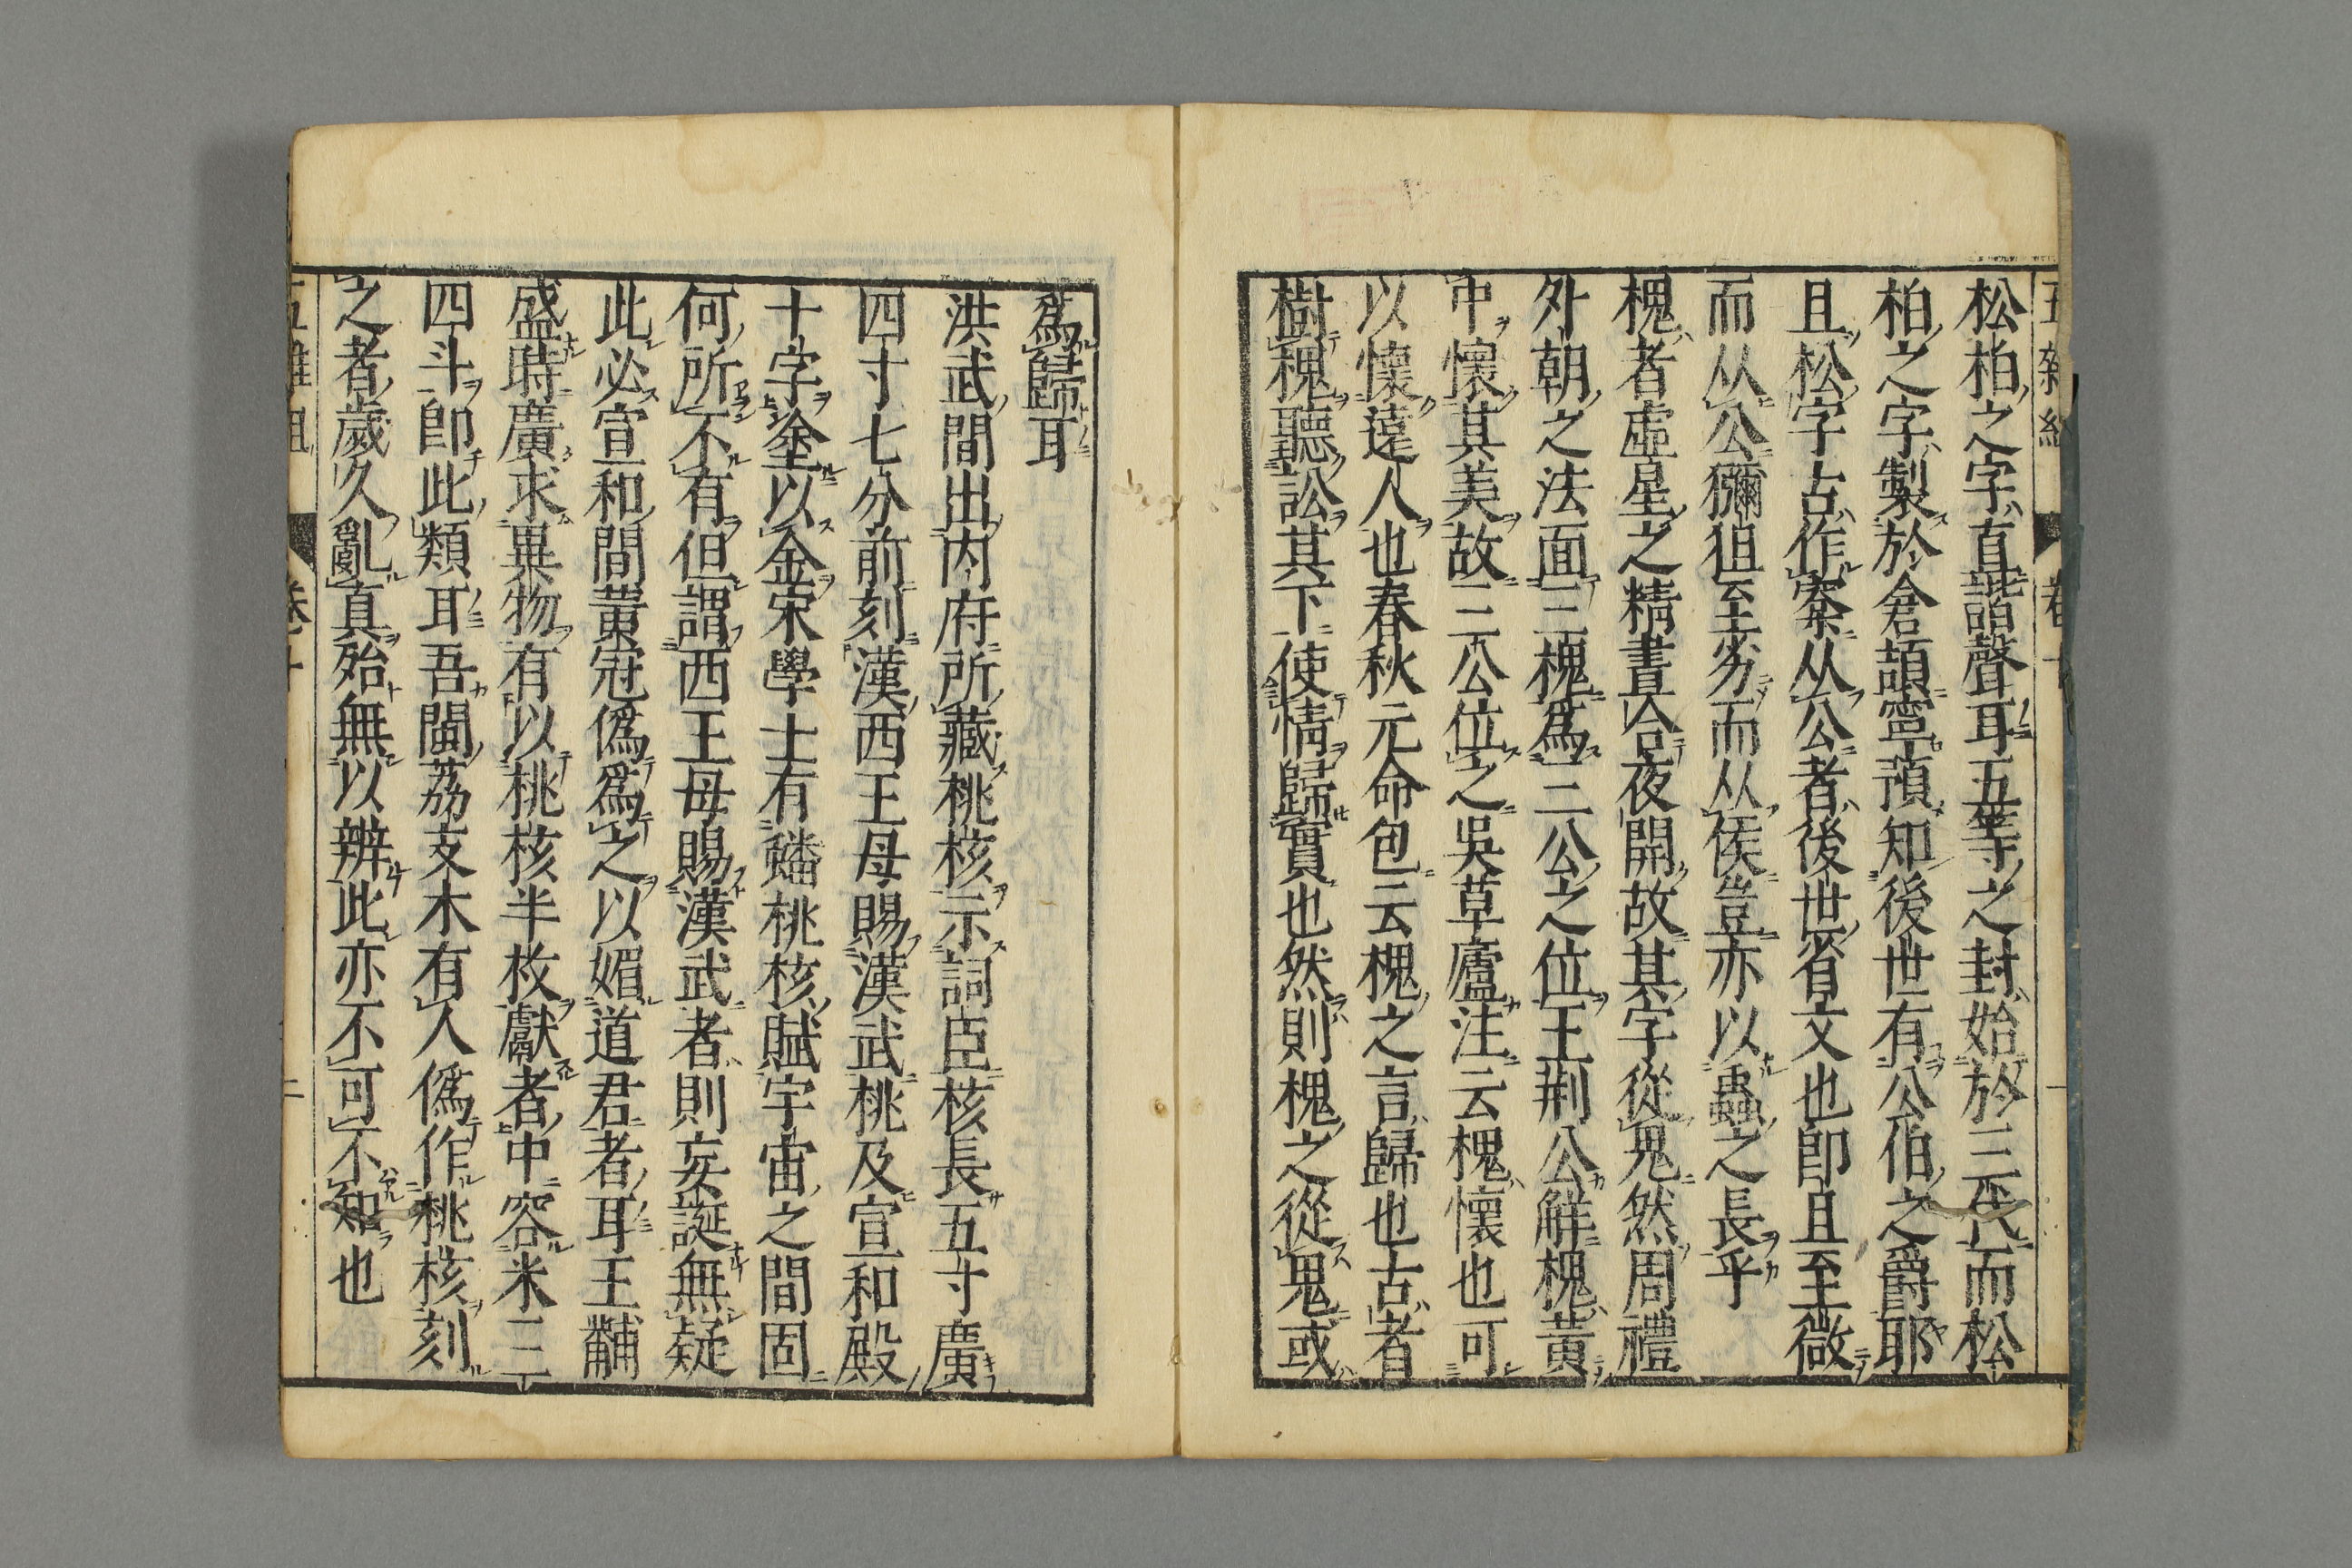 松柏之字直諧聲耳五等之封始於三代而松
柏之字製於倉頡寧預知後世有公伯之爵耶
且松字古作㮤从公者後世省文也即且至微
而从公獮狙至劣而从侯豈亦以蟲之長乎
槐者虛星之精晝合夜開故其字從鬼然周禮
外朝之法面三槐為三公之位王荆公解槐黃
中懷其美故三公位之吳草廬注云槐懷也可
以懷遠人也春秋元命包云槐之言歸也古者
樹槐聽訟其下使情歸實也然則槐之從鬼或
為歸耳
洪武間出內府所藏桃核示詞臣核長五寸廣
四寸七分前刻漢西王母賜漢武桃及宣和殿
十字塗以金宋學士有蟠桃核賦宇宙之間固
何所不有但謂西王母賜漢武者則妄誕無疑
此必宣和間黃冠偽為之以媚道君者耳王黼
盛時廣求異物有以桃核半枚獻者中容米三
四斗即此類耳吾閩荔支木有人偽作桃核刻
之者歲久亂真殆無以辨此亦不可不知也
五雜組
卷十
二